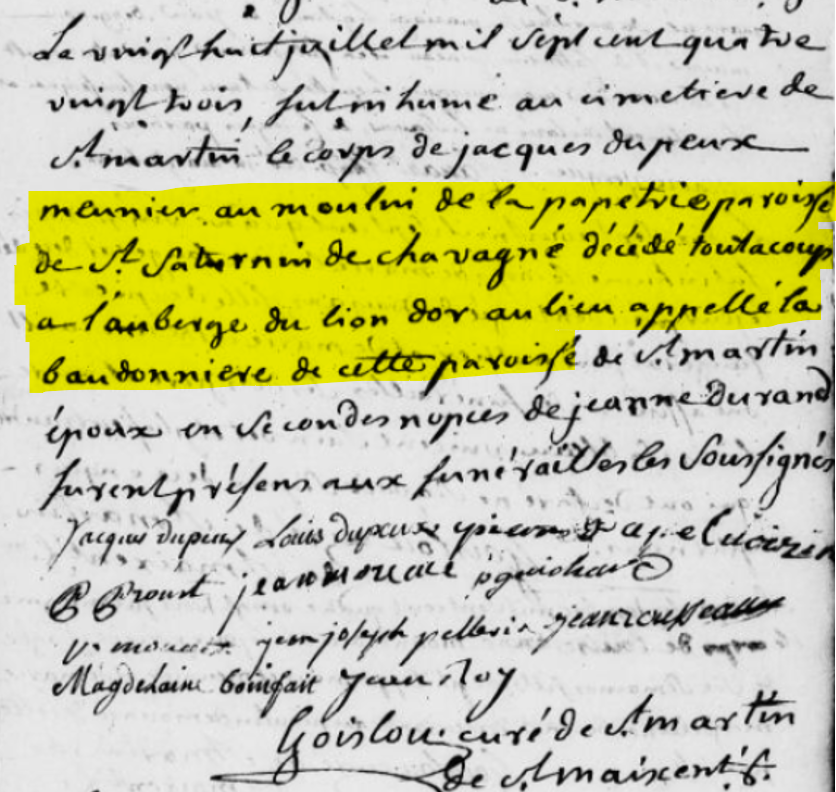 Le vingt huit juillet mil sept cent quatre
vingt trois, fut inhumé au cimetiere de
St martin le corps de jacques dupeux
meunier au moulin de la papetrie paroisse
de St Saturnin de chavagné décédé toutacoup
a l'auberge du lion dor au lieu appellé la
baudonniere de cette paroisse de St martin
époux en secondes nopces de jeanne durand
furent présens aux funérailles les Soussignés
jacques dupeux Louis dupeux
P Proust jean moreau p guichard
jean joseph pellerin jean rousseau
Magdelaine bonifait jean Roy
Goislou curé de St martin
de St maixent